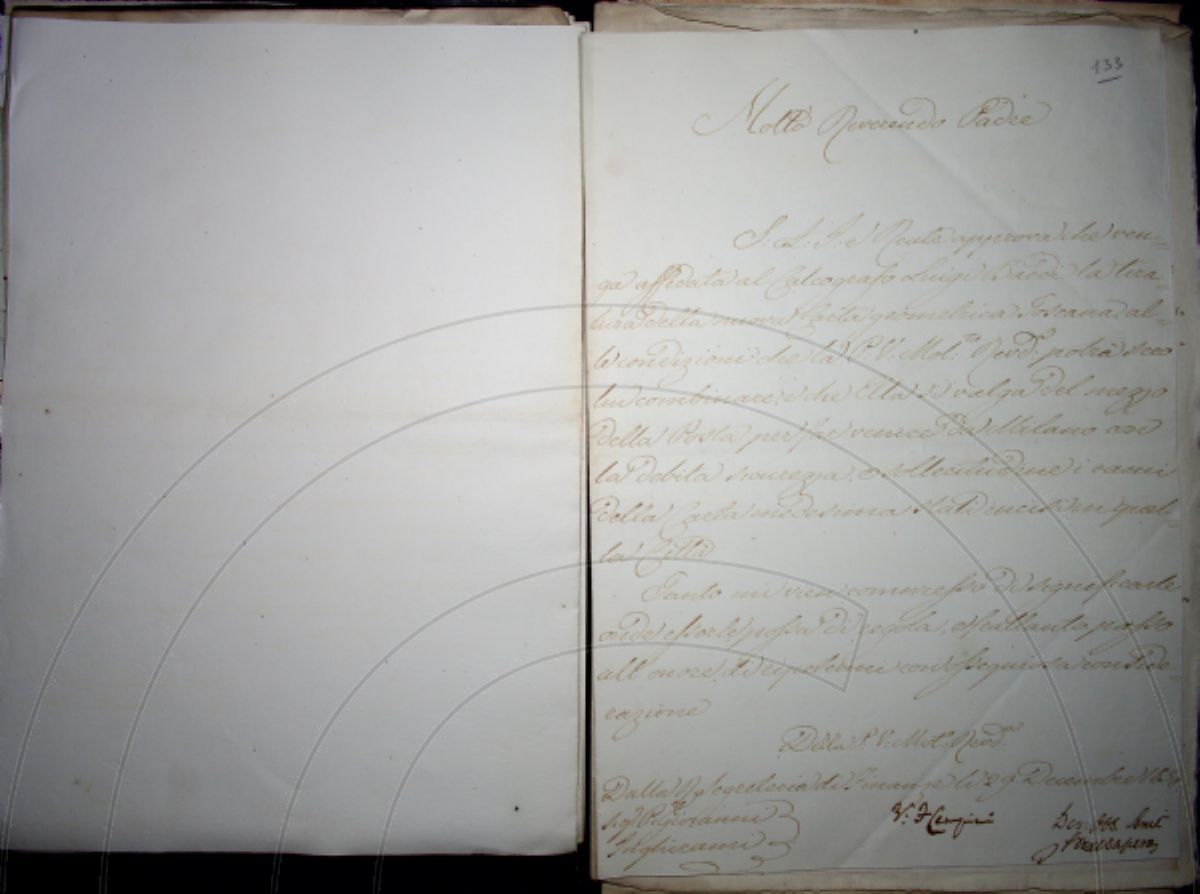 133
Molto Reverendo Padre
S: A. I: e Reale approva che ven-
ga affidata al Calcografo Luigi Bardi la tira-
tura della nuova Carta geometrica Toscana al-
le condizioni che la P. V. Mol:to Revd:a potrà seco
lui combinare; e che Ella si valga del mezzo
della Posta per far venire da Milano con
la debita sicurezza, e sollecitudine i rami
della Carta medesima stati incisi in quel-
la Città
Tanto mi vien commesso di significarle
onde esserle possa di regola, e frattanto passo
all'onore di ripetermi con ossequiosa conside-
razione
Della P. V: Mol:o Revd:a
Dalla R. Segreteria di Finanze li 29 Decembre
Sig:r P. Giovanni
Inghirami
V:o F Cempini
Dev. Obb.